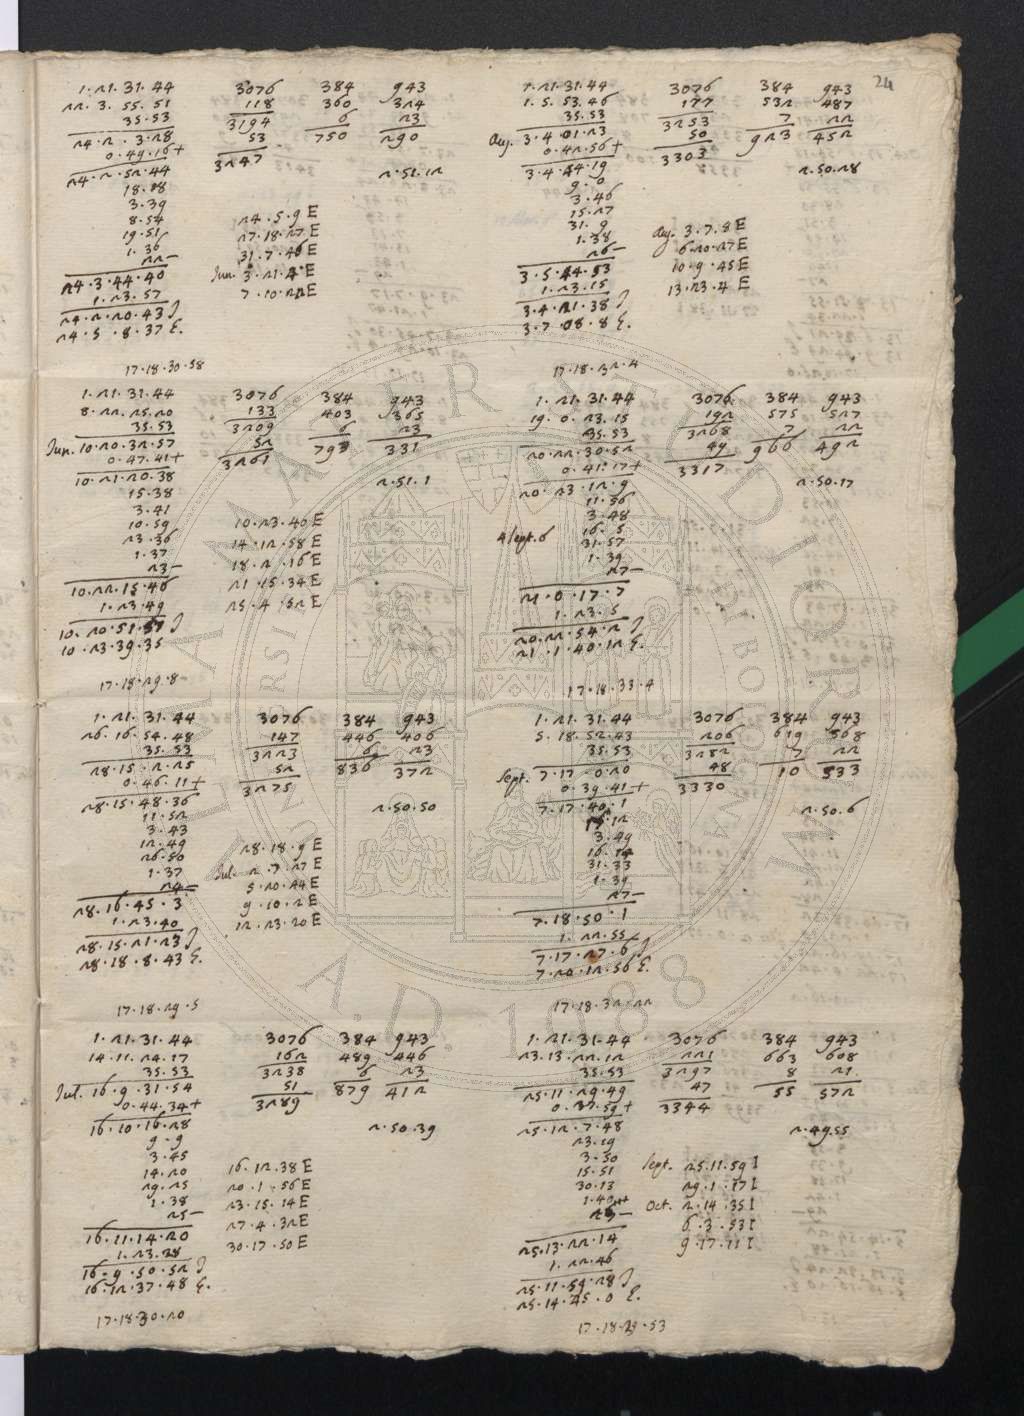 24
1·21·31·44 3076 384 943
22·3·55·51 118 360 324
35·53 3194 6 23
24·2·3·28 53 750 290
0·49·16+ 3247
24·2·52·44 2·51·12
18·18
3·39
8·54 24·5·9E
19·51 27·18·27E
1·36 31·7·46E
22—
24·3·44·40 Jun. 3·21·4E
1·23·57 7·10·22E
24·2·20·43 J
24·5·8·37 E.
17·18·30·58
1·21·31·44 3076 384 943
8·22·25·20 133 403 365
35·53 3209 6 23
Jun. 10·20·32·57 52 793 331
0·47·41+ 3261
10·21·20·38 2·51·1
15·38
3·41
10·59 10·23·40E
23·36 14·12·58E
1·37 18·2·16E
23—
10·22·15·46 21·15·34E
1·23·49 25·4·52E
10·20·51·57 J
10·23·39·35
17·18·29·8
1·21·31·44 3076 384 943
26·16·54·48 147 446 406
35·53 3223 6 23
28·15·2·25 52 836 372
0·46·11+ 3275
28·15·48·36 2·50·50
11·52
3·43
12·49 28·18·9E
26·50 Jul. 2·7·27E
1·37 5·20·44E
24—
28·16·45·3 9·10·2E
1·23·40 12·23·20E
28·15·21·23 J
28·18·8·43 E.
17·18·29·5
1·21·31·44 3076 384 943
14·11·24·17 162 489 446
35·53 3238 6 23
Jul. 16·9·31·54 51 879 412
0·44·34+ 3289
16·10·16·28 2·50·39
9·9
3·45
14·20 16·12·38E
29·25 20·1·56E
1·38 23·15·14E
25— 27·4·32E
16·11·14·20 30·17·50E
1·23·28
16·9·50·52 J
16·12·37·48 E.
17·18·30·20
1·21·31·44 3076 384 943
1·5·53·46 177 532 487
35·53 3253 7 22
Aug. 3·4·01·23 50 923 452
0·42·56+ 3303
3·4·44·19 2·50·28
9·0
3·46
15·27
31·9 Aug. 3·7·8E
1·38 6·20·27E
26—
3·5·44·53 10·9·45E
1·23·15 13·23·4E
3·4·21·38 J
3·7·08·8 E.
17·18·32·4
1·21·31·44 3076 384 943
19·0·23·15 192 575 527
35·53 3268 7 22
20·22·30·52 49 966 492
0·41·17+ 3317
20·23·12·9 2·50·17
11·56
3·48
16·5
4 Sept. 6 31·57
1·39
27—
21·0·17·7
1·23·5
20·22·54·2 J
21·1·40·12 E.
17·18·33·4
1·21·31·44 3076 384 943
5·18·52·43 206 619 568
35·53 3282 7 22
Sept. 7·17·0·20 48 10 533
0·39·41+ 3330
7·17·40·1 2·50·6
17·12
3·49
16·14
31·33
1·39
27—
7·18·50·1
1·22·55
7·17·27·6 J
7·20·12·56 E.
17·18·32·22
1·21·31·44 3076 384 943
23·13·22·12 221 663 608
35·53 3297 8 21
25·11·29·49 47 55 572
0·37·59+ 3344
25·12·7·48 2·49·55
23·19
3·50
15·51 Sept. 25·11·59I
30·13 29·1·17I
1·40 Oct. 2·14·35I
27— 6·3·53I
25·13·22·14 9·17·11I
1·22·46
25·11·59·28 J
25·14·45·0 E.
17·18·29·53